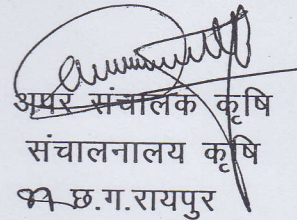 अपर संचालक कृषि
संचालनालय कृषि
छ.ग.रायपुर